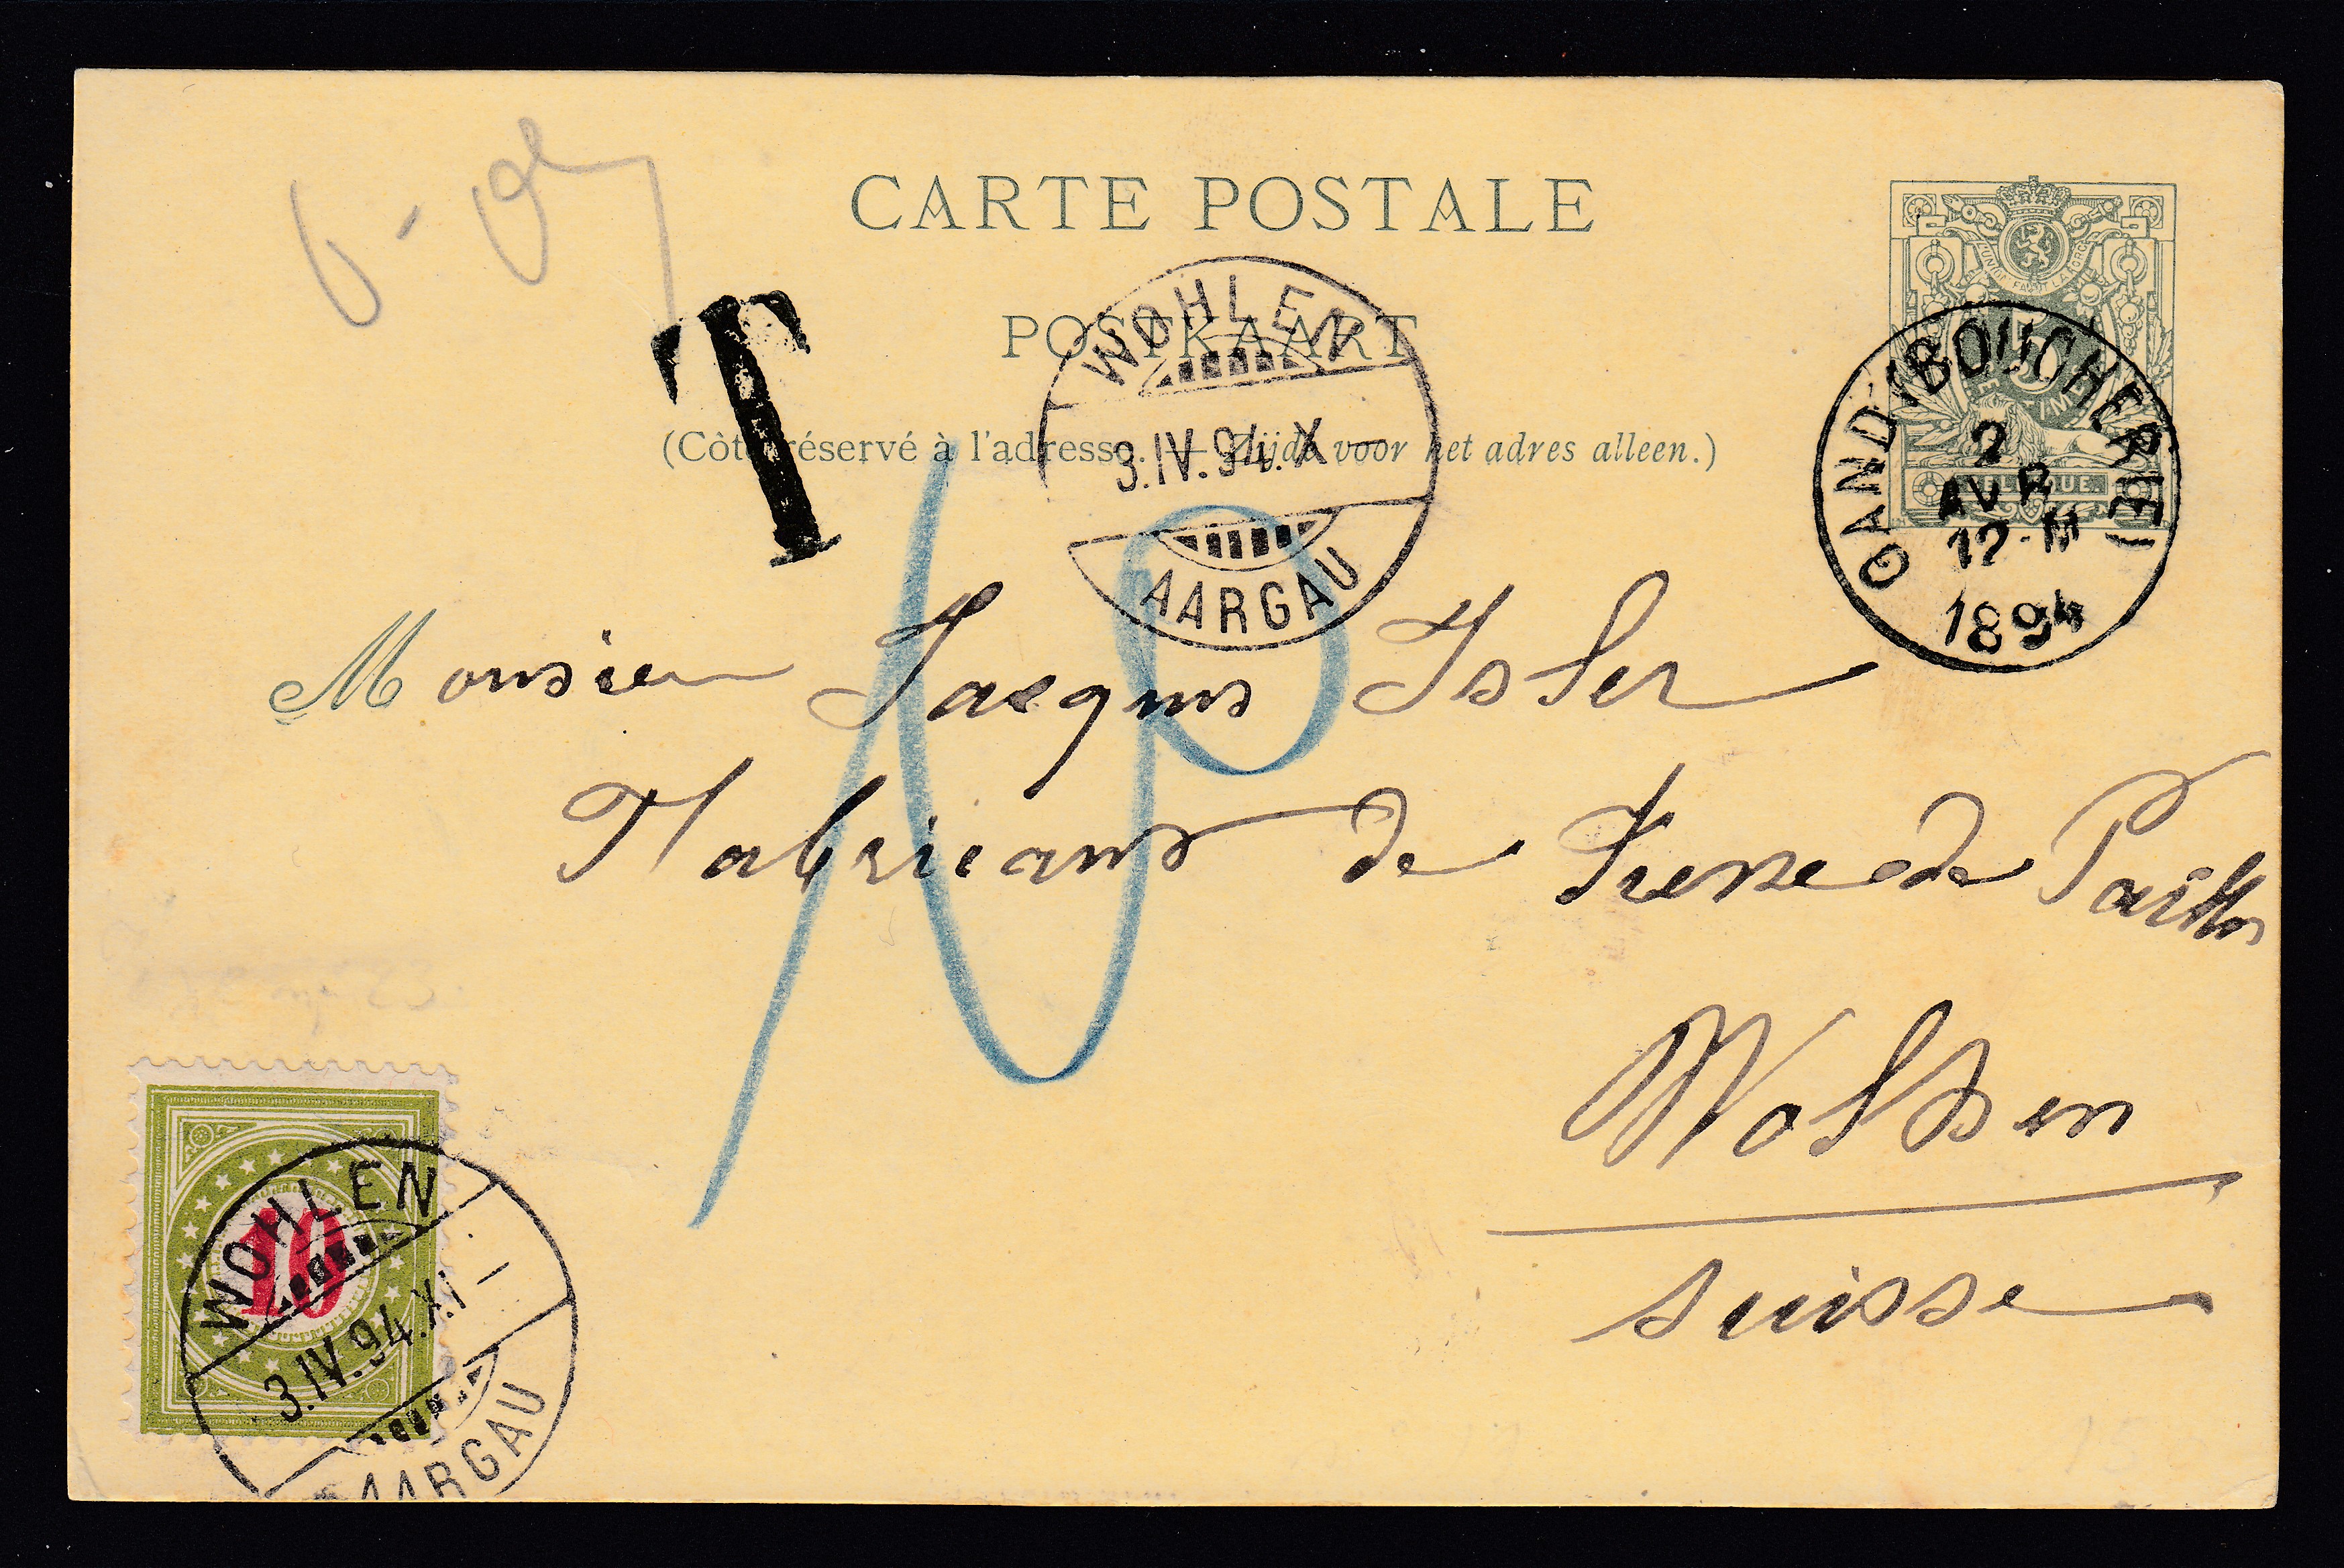 CARTE POSTALE
POSTKAART
(Côté réservé à l'adresse. — Zijde voor het adres alleen.)
T
WOHLEN
3.IV.94.X —
AARGAU
L'UNION FAIT LA FORCE
5
BELGIQUE.
GAND (BOUCHERIE)
2
AVR
12-M
1894
10
Monsieur Jacques Isler
Fabricant de Tresse de Paille
Wohlen
Suisse
10
WOHLEN
3.IV.94.XI —
AARGAU